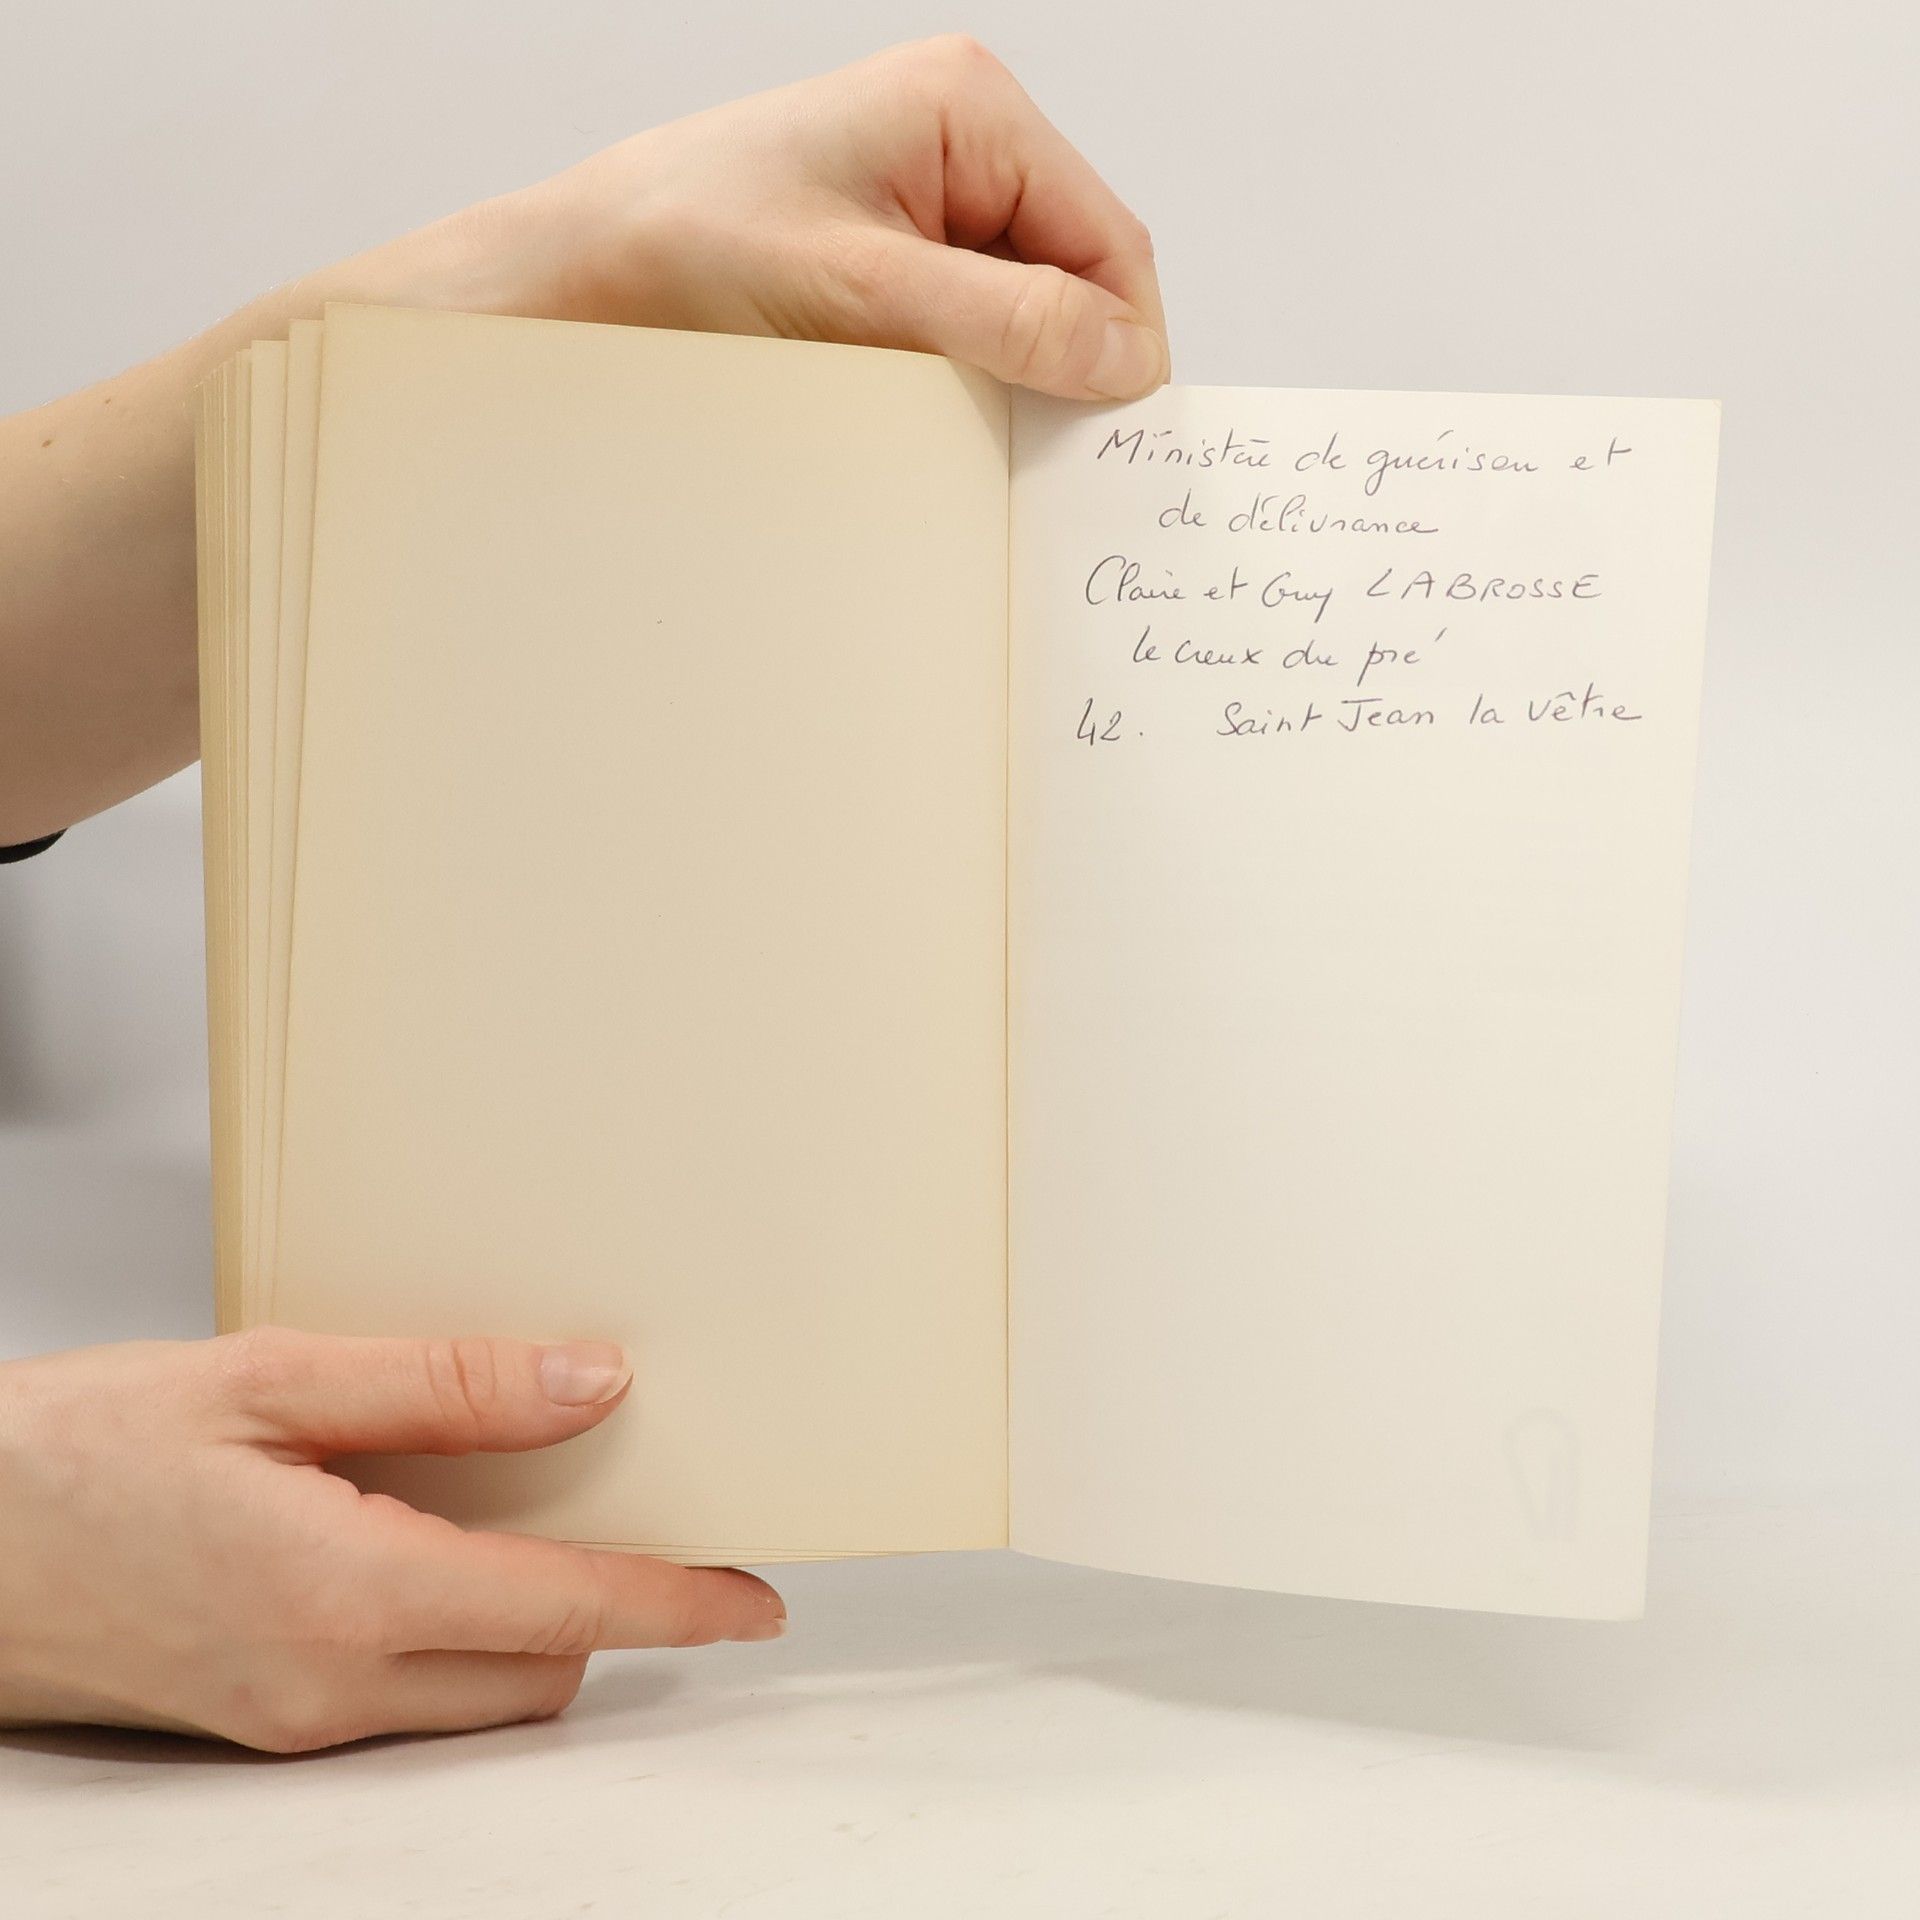 Ministère de guérison et
de délivrance
Claire et Guy LABROSSE
le creux du pré
42. Saint Jean la Vêtre